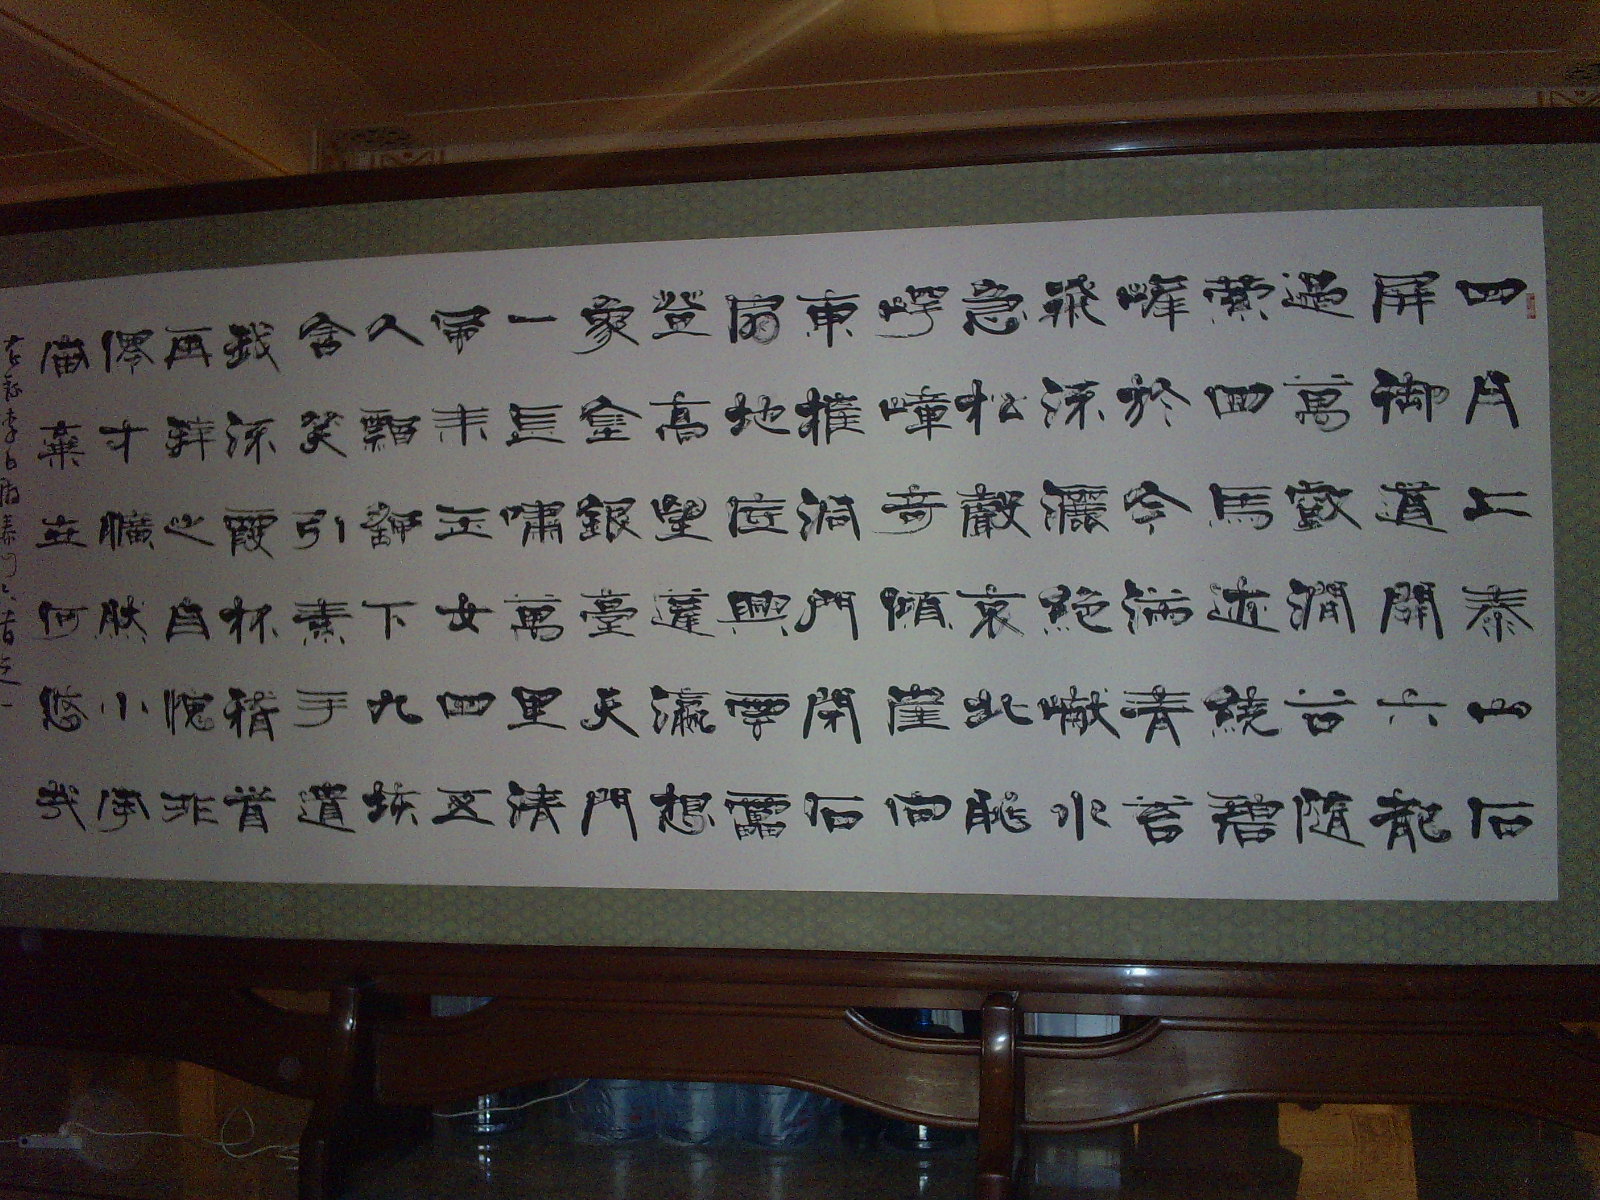 四月上泰山石
屏御道開六龍
過萬壑澗谷隨
縈回馬迹繞碧
峰於今滿青苔
飛流灑絕巘水
急松聲哀北眺
崿嶂奇傾崖向
東摧洞門閉石
扇地底興雲雷
登高望蓬瀛想
象金銀臺天門
一長嘯萬里清
風來玉女四五
人飄颻下九垓
含笑引素手遺
我流霞杯稽首
再拜之自愧非
僊才曠然小宇
宙棄世何悠哉
李白游泰山六首之一